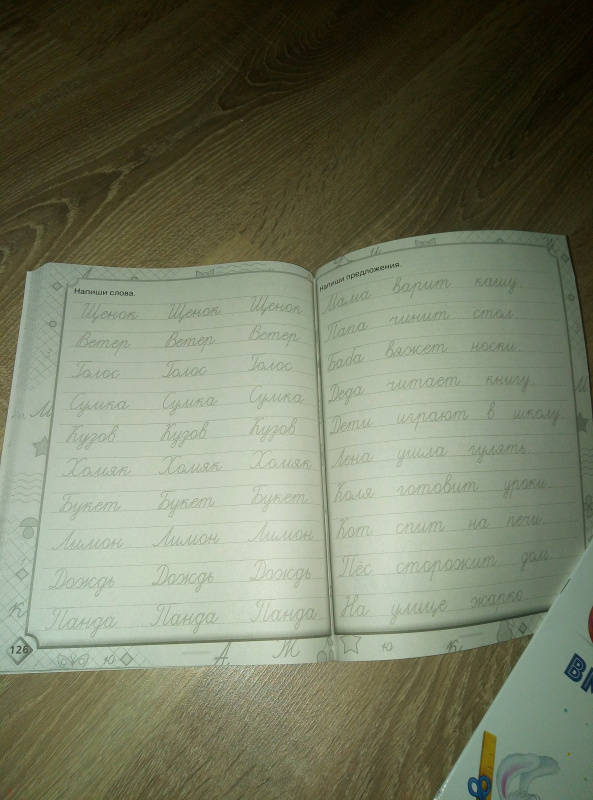 Напиши слова.
Щенок Щенок Щенок
Ветер Ветер Ветер
Голос Голос Голос
Сумка Сумка Сумка
Кузов Кузов Кузов
Хомяк Хомяк Хомяк
Букет Букет Букет
Лимон Лимон Лимон
Дождь Дождь Дождь
Панда Панда Панда
126
Напиши предложения.
Мама варит кашу.
Папа чинит стол.
Баба вяжет носки.
Деда читает книгу.
Дети играют в школу.
Лена ушла гулять.
Коля готовит уроки.
Кот спит на печи.
Пёс сторожит дом.
На улице жарко.